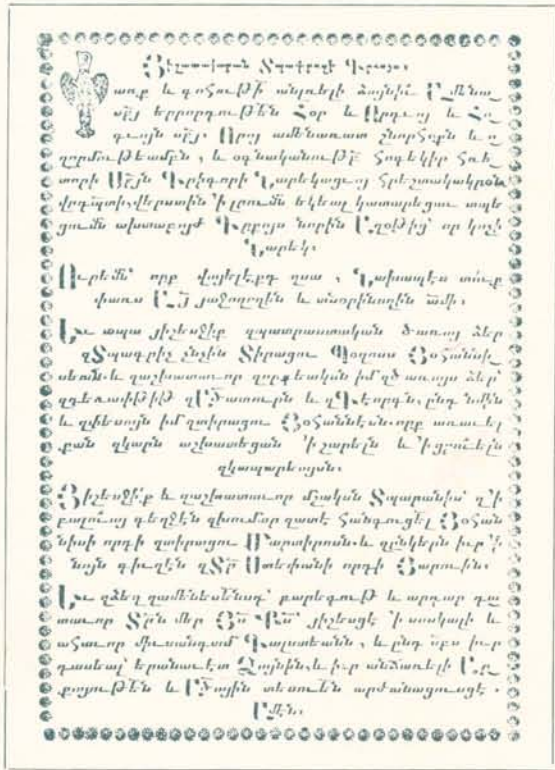 Յիշատակարան Տպագրողի Գրքոյս։
առք և գոհութի անլռելի ձայնիւ Ամենա
սրբյ երրորդութեն Հօր և Որդւոյ և Հո
գւոյն սրբյ. Որոյ ամենառատ շնորհօքն և ո
ղորմութեամբն , և օգնականութբ հոգեկիր հռե
տորի Սրբյն Գրիգորի Նարեկացւոյ հրեշտակակրօն
վրդպտի, վերստին ՚ի լրումն եկեալ կատարեցաւ տպե
ցումն ախտաբոյժ Գրքոյս նորին Աղօթից՝ որ կոչի
Նարեկ։
Ուրեմն՝ որք վայելէքդ զսա , Նախապէս տուք
փառս Այ յաջողողին և տնօրինողին ամի։
Եւ ապա յիշեսջիք զպատրաստական ծառայ ձեր
զՏպագրիչ չնչին Տիրացու Պօղոսս Յօհաննի
սեան. և զաշխատաւոր զորդեական իմ զծառայս ձեր՝
զդեռափթիթ և զԳէորգն. ընդ նմին
և զփեսայն իմ զտիրացու Յօհաննէսն. որք առաւել
քան զկարն աշխատեցան ՚ի շարելն և ՚ի ցրուելն
զկապարեայսն։
Յիշեսջիք և զաշխատաւոր մշակսն Տպարանիս՝ զ՚ի
գեղջէն հանգուցել Յօհան
նիսի որդի զտիրացու Մարտիրոսն. և զընկերն իւր ՚ի
նոյն գիւղէն զՏր Ստեփանի որդի Յարութին։
Եւ զձեզ զամենեսեանսդ՝ բարեգութ և արդար դա
տաւոր Տրն մեր Յս Քս՝ յիշեսցէ ՚ի սոսկալի և
ահաւոր միւսանգամ Գալստեանն, և ընդ սբս իւր
դասեալ՝ երանաւէտ Ձայնին, և իւր անճառելի Ար
քայութեն և Ածային տեսութեն արժանացուսցէ .
Ամէն։